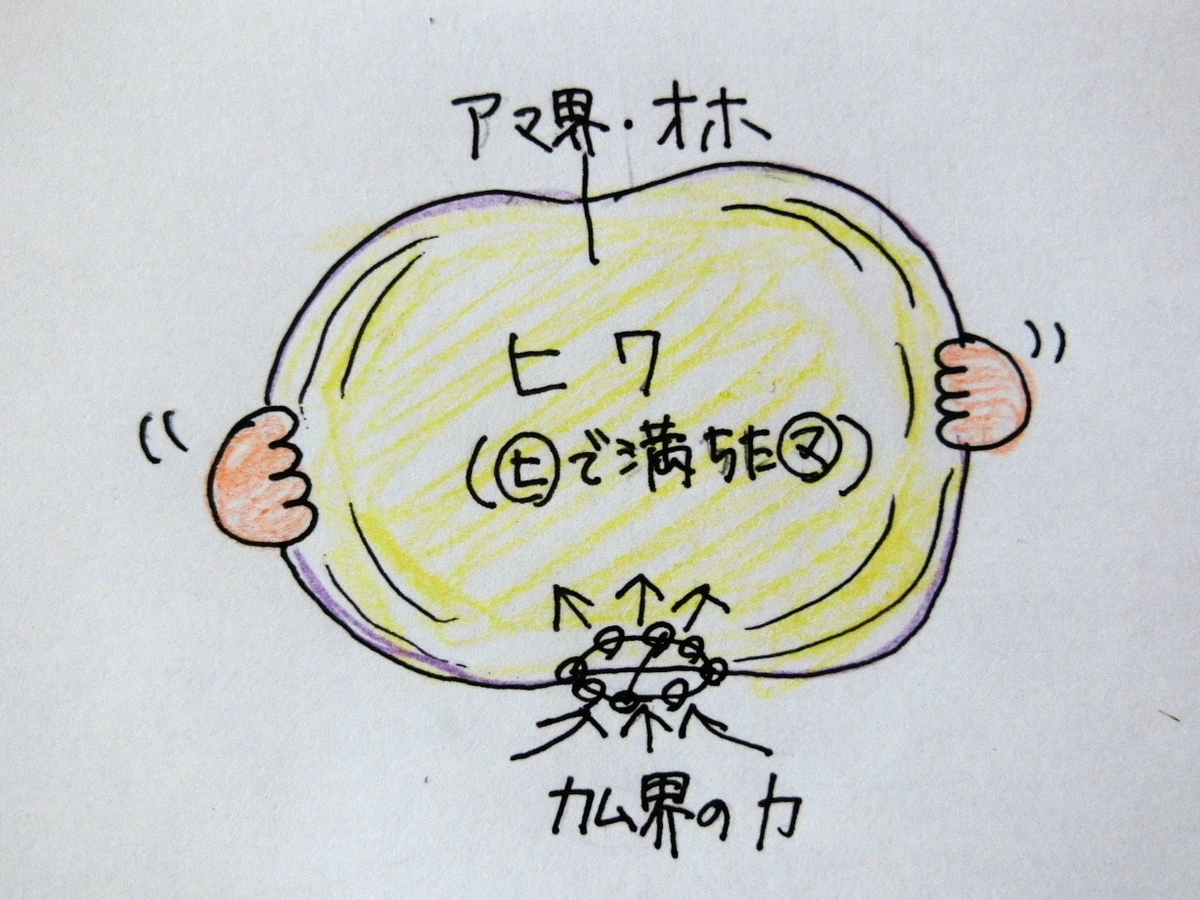 アマ界・オホ
ヒワ
(ヒで満ちたマ)
カム界の力